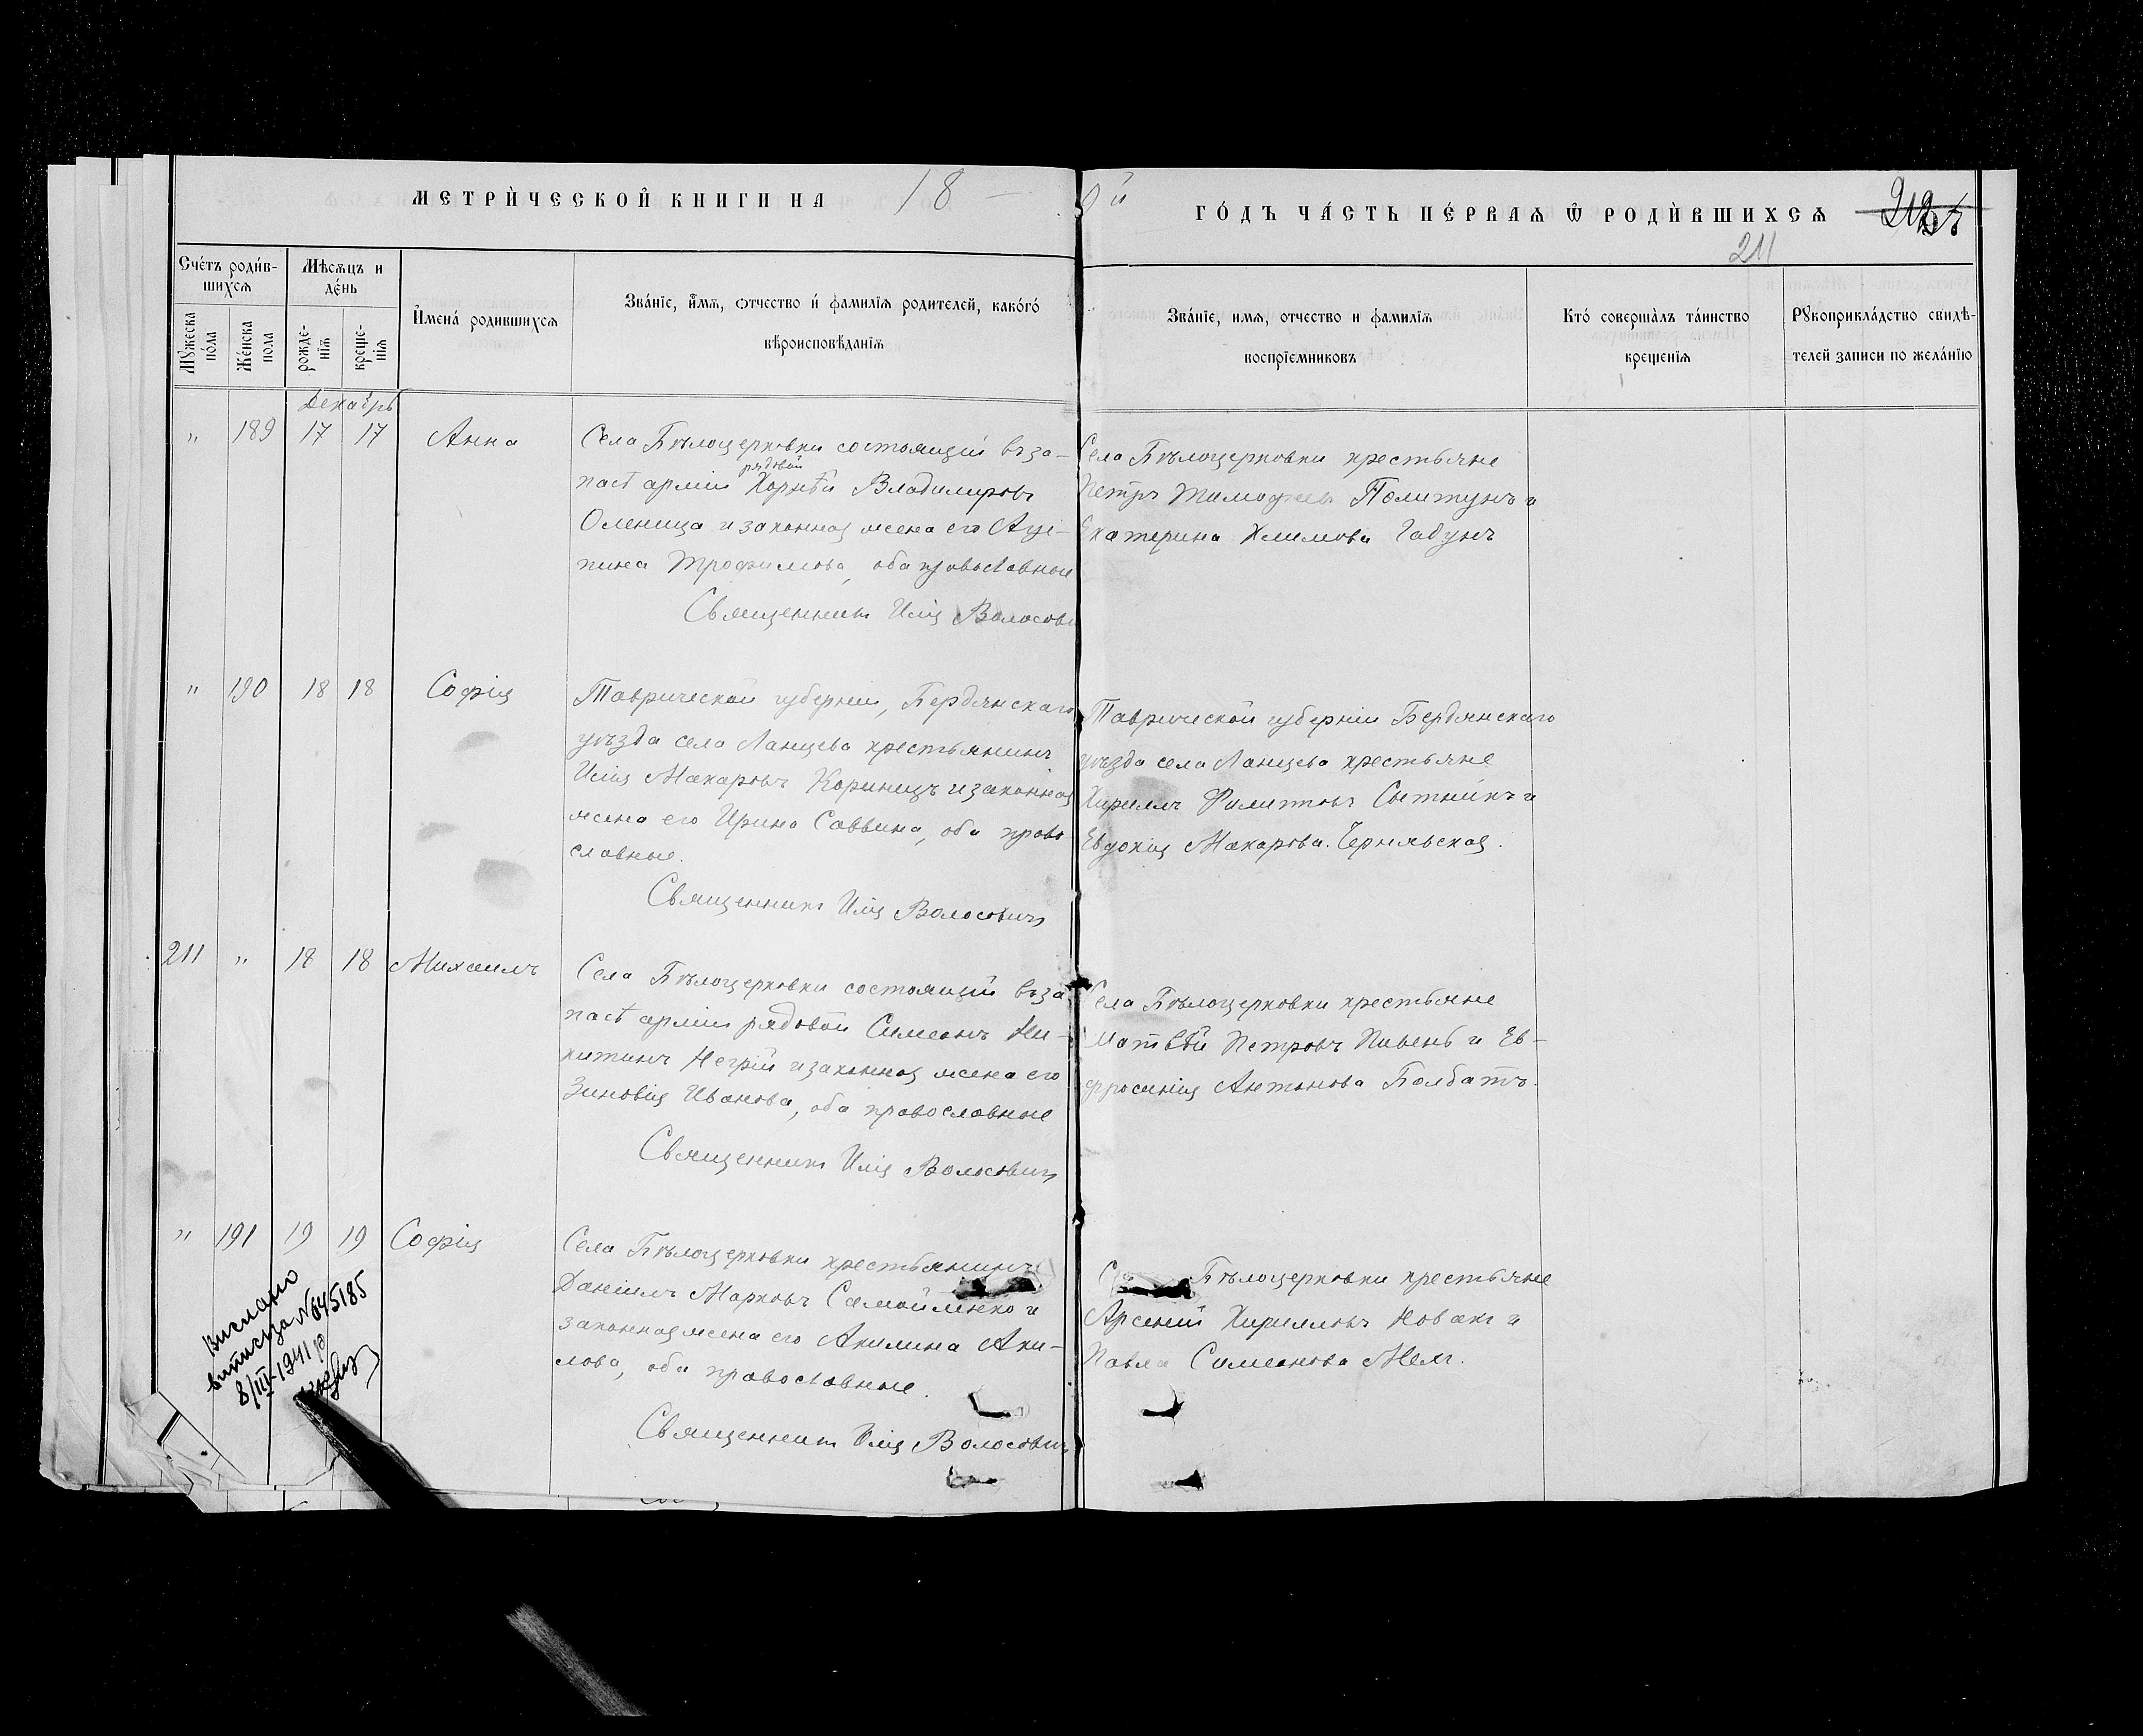 МЕТРИ́ЧЕСКОЙ КНИГИ НА 18
й ГО́ДЪ ЧА́СТЬ ПЕ́РВАѦ Ѿ РОДИ́ВШИХСѦ
211
Сче́тъ роди́в-
шихсѧ
Мѣ́сѧцъ и
де́нь
Мꙋжеска
по́ла
Же́нска
пола
рожде-
нїѧ
креще-
нїѧ
И҆мена́ роди́вшихсѧ
Зва́нїе, и҆́мѧ, ѻтчество и҆ фамилїѧ родителей, како́го
вѣроисповѣданїѧ
Зва́нїе, имѧ, отчество и фамилїѧ
воспрїемниковъ
Кто́ соверша́лъ та́инство
крещенїѧ
Рꙋкоприкла́дство свидѣ-
телей записи по жела́нїю
Декабрь
" 189 17 17 Анна
Села Бѣлоцерковки состоящій въ за-
рядовой
пасѣ арміи Корнѣй Владиміровъ
Оленица и законная жена его Агри-
пина Трофимова, оба православные
Священникъ Илія Волосович
Села Бѣлоцерковки крестьяне
Петръ Тимофеевъ Полтунъ и
Екатерина Климова Габунъ
" 190 18 18 Софія
Таврической губерніи, Бердянскаго
уѣзда села Ланцева крестьянинъ
Илія Макаровъ Кориницъ и законная
жена его Ирина Саввина, оба право-
славные.
Священникъ Илія Волосовичъ
Таврической губерніи Бердянскаго
уѣзда села Ланцева крестьяне
Кириллъ Филиповъ Сытникъ и
Евдокія Макарова Чернявская.
211 " 18 18 Михаилъ
Села Бѣлоцерковки состоящій въ за-
пасѣ арміи рядовой Симеонъ Ни-
китинъ Негрій и законная жена его
Зиновія Иванова, оба православные
Священникъ Илія Волосовичъ
Села Бѣлоцерковки крестьяне
Матвѣй Петровъ Пивень и Ев-
фросинія Антонова Болбатъ.
" 191 19 19 Софія
Села Бѣлоцерковки крестьянинъ
Даніилъ Марковъ Самойленко и
законная жена его Акилина Аки-
лова, оба православные.
Священникъ Илія Волосовичъ
Бѣлоцерковки крестьяне
Арсеній Кирилловъ Новакъ и
Павла Симеонова Мехъ.
Вислано
витяг за № 645185
8/III-1941 р